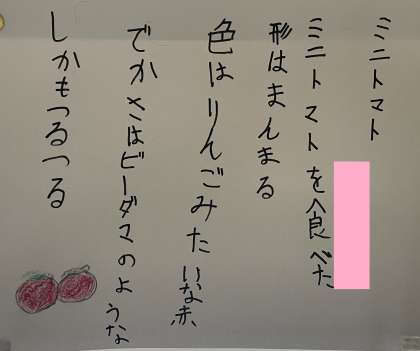 ミニトマト
ミニトマトを食べた
形はまんまる
色はりんごみたいな赤
でかさはビーダマのような
しかもつるつる